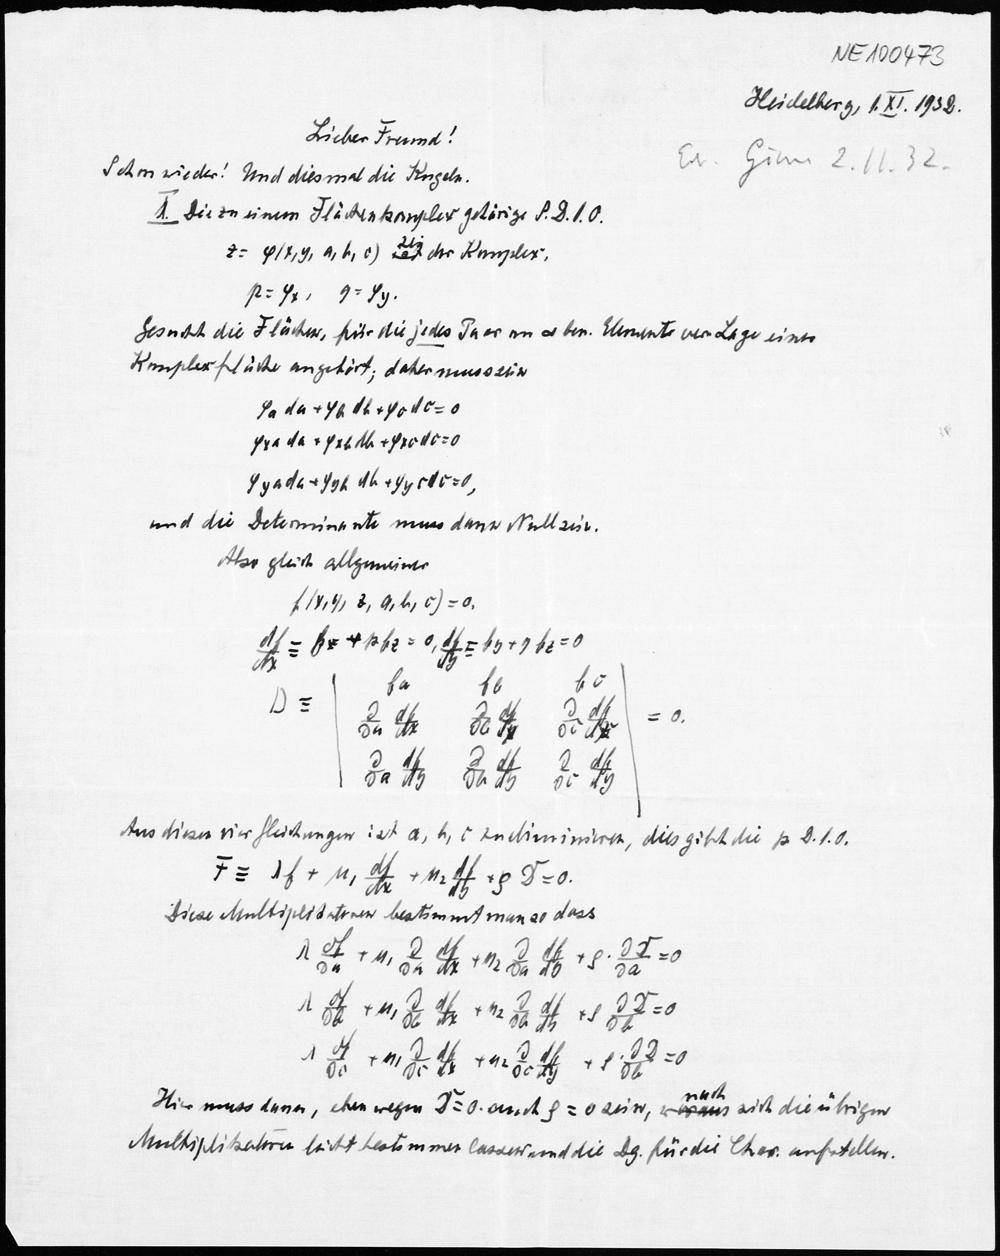 NE100473
Heidelberg, 1.XI.1932.
Lieber Freund!
2.11.32.
Schon wieder! Und diesmal die Kugeln.
1. Die zu einem Flächenkomplex gehörige P.D.1.O.
z = φ(x,y, a,b,c) sei der Komplex,
p = φx, q = φy.
Gesucht die Flächen, für die jedes Paar von ben. Elemente ver. Lage einer
Komplexfläche angehört; daher muss sein
φa da + φb db + φc dc = 0
φxa da + φxb db + φxc dc = 0
φya da + φyb db + φyc dc = 0,
und die Determinante muss dann Null sein.
Also gleich allgemeiner
f(x,y, z, a,b,c) = 0.
df/dx ≡ fx + p fz = 0, df/dy ≡ fy + q fz = 0
D ≡ | fa fb fc |
| ∂/∂a df/dx ∂/∂b df/dx ∂/∂c df/dx | = 0.
| ∂/∂a df/dy ∂/∂b df/dy ∂/∂c df/dy |
Aus diesen vier Gleichungen ist a, b, c zu eliminieren, dies gibt die p D.1.O.
F ≡ λf + μ1 df/dx + μ2 df/dy + ρ D = 0.
Diese Multiplikatoren bestimmt man so dass
λ ∂f/∂a + μ1 ∂/∂a df/dx + μ2 ∂/∂a df/dy + ρ · ∂D/∂a = 0
λ ∂f/∂b + μ1 ∂/∂b df/dx + μ2 ∂/∂b df/dy + ρ ∂D/∂b = 0
λ ∂f/∂c + μ1 ∂/∂c df/dx + μ2 ∂/∂c df/dy + ρ · ∂D/∂b = 0
Hier muss dann, eben wegen D = 0 auch ρ = 0 sein, wonach sich die übrigen
Multiplikatoren leicht bestimmen lassen und die Dg. für die Char. aufstellen.